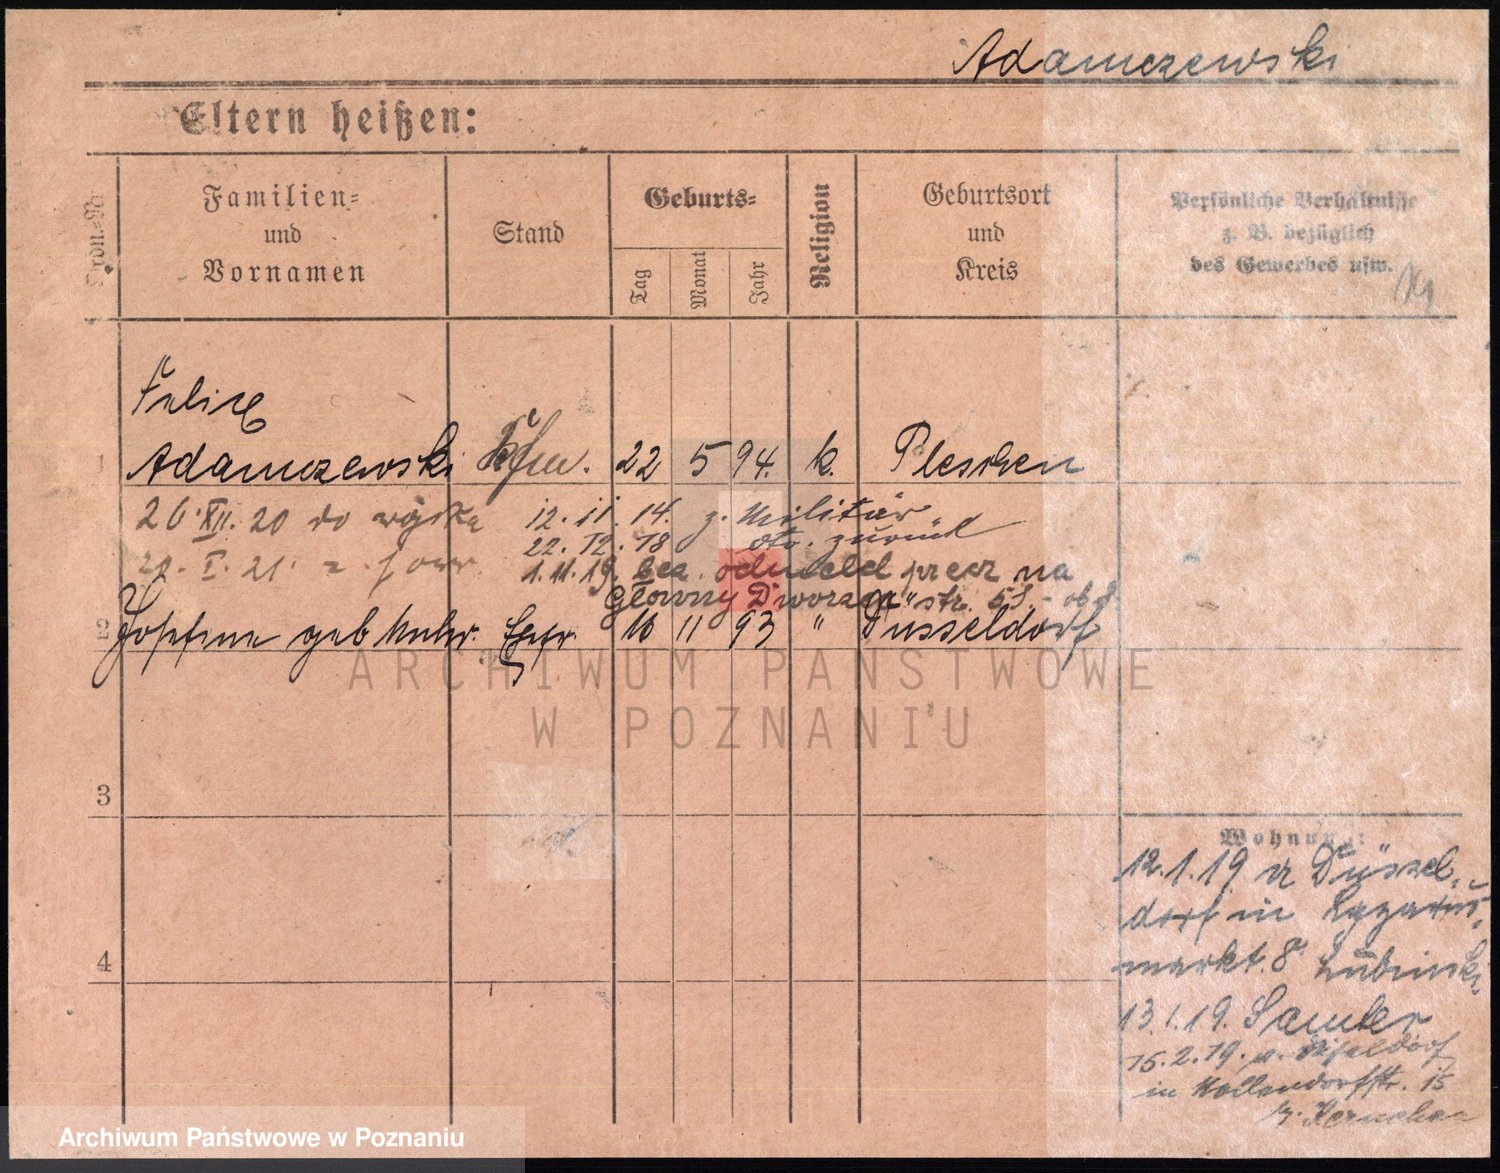 Adamczewski
Eltern heißen:
Ordn.=Nr
Familien=
und
Vornamen
Stand
Geburts=
Tag
Monat
Jahr
Religion
Geburtsort
und
Kreis
Persönliche Verhältnisse
z. B. bezüglich
des Gewerbes usw.
Felix
1 Adamczewski Kfm. 22 5 94. k. Pleschen
26. XII. 20 do wojska 12. 11. 14. z. Militär
22. 12. 18 dto. zurück
21. I. 21. z 1. 11. 19. bez. odmeld przez na
Główny Dworzec str. 53
2 Josefine geb Ehefr. 10 11 93 " Düsseldorf
ARCHIWUM PAŃSTWOWE
W POZNANIU
3
4
Wohnung:
12. 1. 19 Düssel-
dorf in Lazarus-
markt. 8 Lubinski
13. 1. 19. Samter
15. 2. 19. v. Düsseldorf
in 15
Archiwum Państwowe w Poznaniu